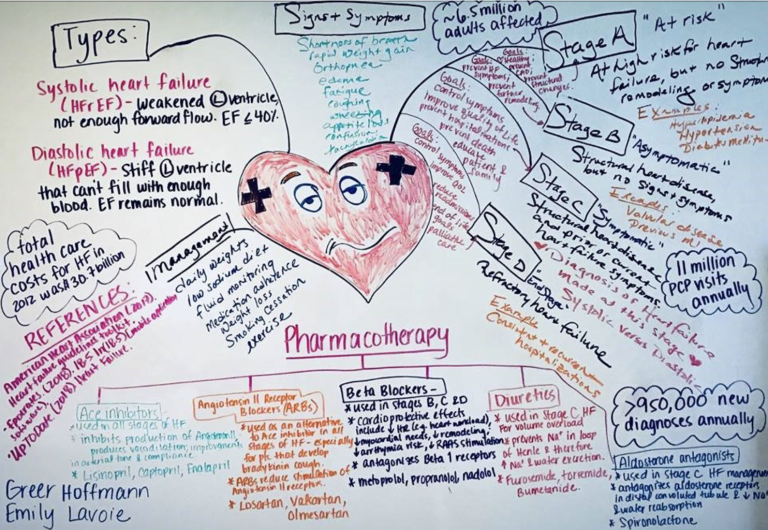 Types:
Systolic heart failure
(HFrEF) - weakened L ventricle,
not enough forward flow. EF ≤ 40%.
Diastolic heart failure
(HFpEF) - Stiff L ventricle
that can't fill with enough
blood. EF remains normal.
Signs + Symptoms
Shortness of breath
rapid weight gain
Orthopnea
edema
fatigue
coughing
wheezing
confusion
~6.5 million
adults affected
Stage A
"At risk"
At high risk for heart
failure, but no structural
remodeling or symptoms
Examples:
Hyperlipidemia
Hypertension
Diabetes
Stage B
"Asymptomatic"
Structural heart disease,
but no signs/symptoms
Examples:
Valvular disease
Previous MI
Stage C
"Symptomatic"
Structural heart disease
and prior or current
heart failure symptoms.
Diagnosis of Heart failure
made at this stage
Systolic versus Diastolic
Stage D
"End Stage"
Refractory heart failure
Examples
Consistent + recurrent
hospitalizations
Goals:
control symptoms
improve quality of life
prevent hospitalizations
prevent death
educate
patient &
family
Goals:
control symptoms
improve QOL
reduce
readmissions
end of life
goals
palliative
care
11 million
PCP visits
annually
total
health care
costs for HF in
2012 was $30.7 billion
Management
daily weights
low sodium diet
fluid monitoring
medication adherence
Weight loss
Smoking Cessation
exercise
REFERENCES:
American Heart Association (2017).
Heart failure guidelines toolkit.
Epocrates (2018).
UPTODATE (2018). Heart failure.
Pharmacotherapy
Ace inhibitors-
* used in all stages of HF
* inhibits production of Angiotensin II,
produces vasodilation; improvements
in arterial tone & compliance
* Lisinopril, Captopril, Enalapril
Angiotensin II Receptor
Blockers (ARBs)
* used as an alternative
to Ace inhibitor in all
stages of HF - especially
for pts that develop
bradykinin cough.
* ARBs reduce stimulation of
Angiotensin II receptor.
* Losartan, Valsartan,
Olmesartan
Beta Blockers-
* used in stages B, C & D
* Cardioprotective effects
include ↓ HR (e.g. heart workload),
↓ myocardial needs, ↓ remodeling,
↓ arrhythmia risk, ↓ RAAS stimulation
* antagonizes Beta 1 receptors
* metoprolol, propranolol, nadolol
Diuretics
* used in Stage C HF
for volume overload
* prevents Na+ in loop
of Henle & therefore
↑ Na+ & water excretion.
* Furosemide, torsemide,
Bumetanide.
>950,000 new
diagnoses annually
Aldosterone antagonists
* used in stage C HF management
* antagonizes aldosterone receptors
in distal convoluted tubule & ↓ Na+
& water reabsorption
* Spironolactone
Greer Hoffmann
Emily Lavoie